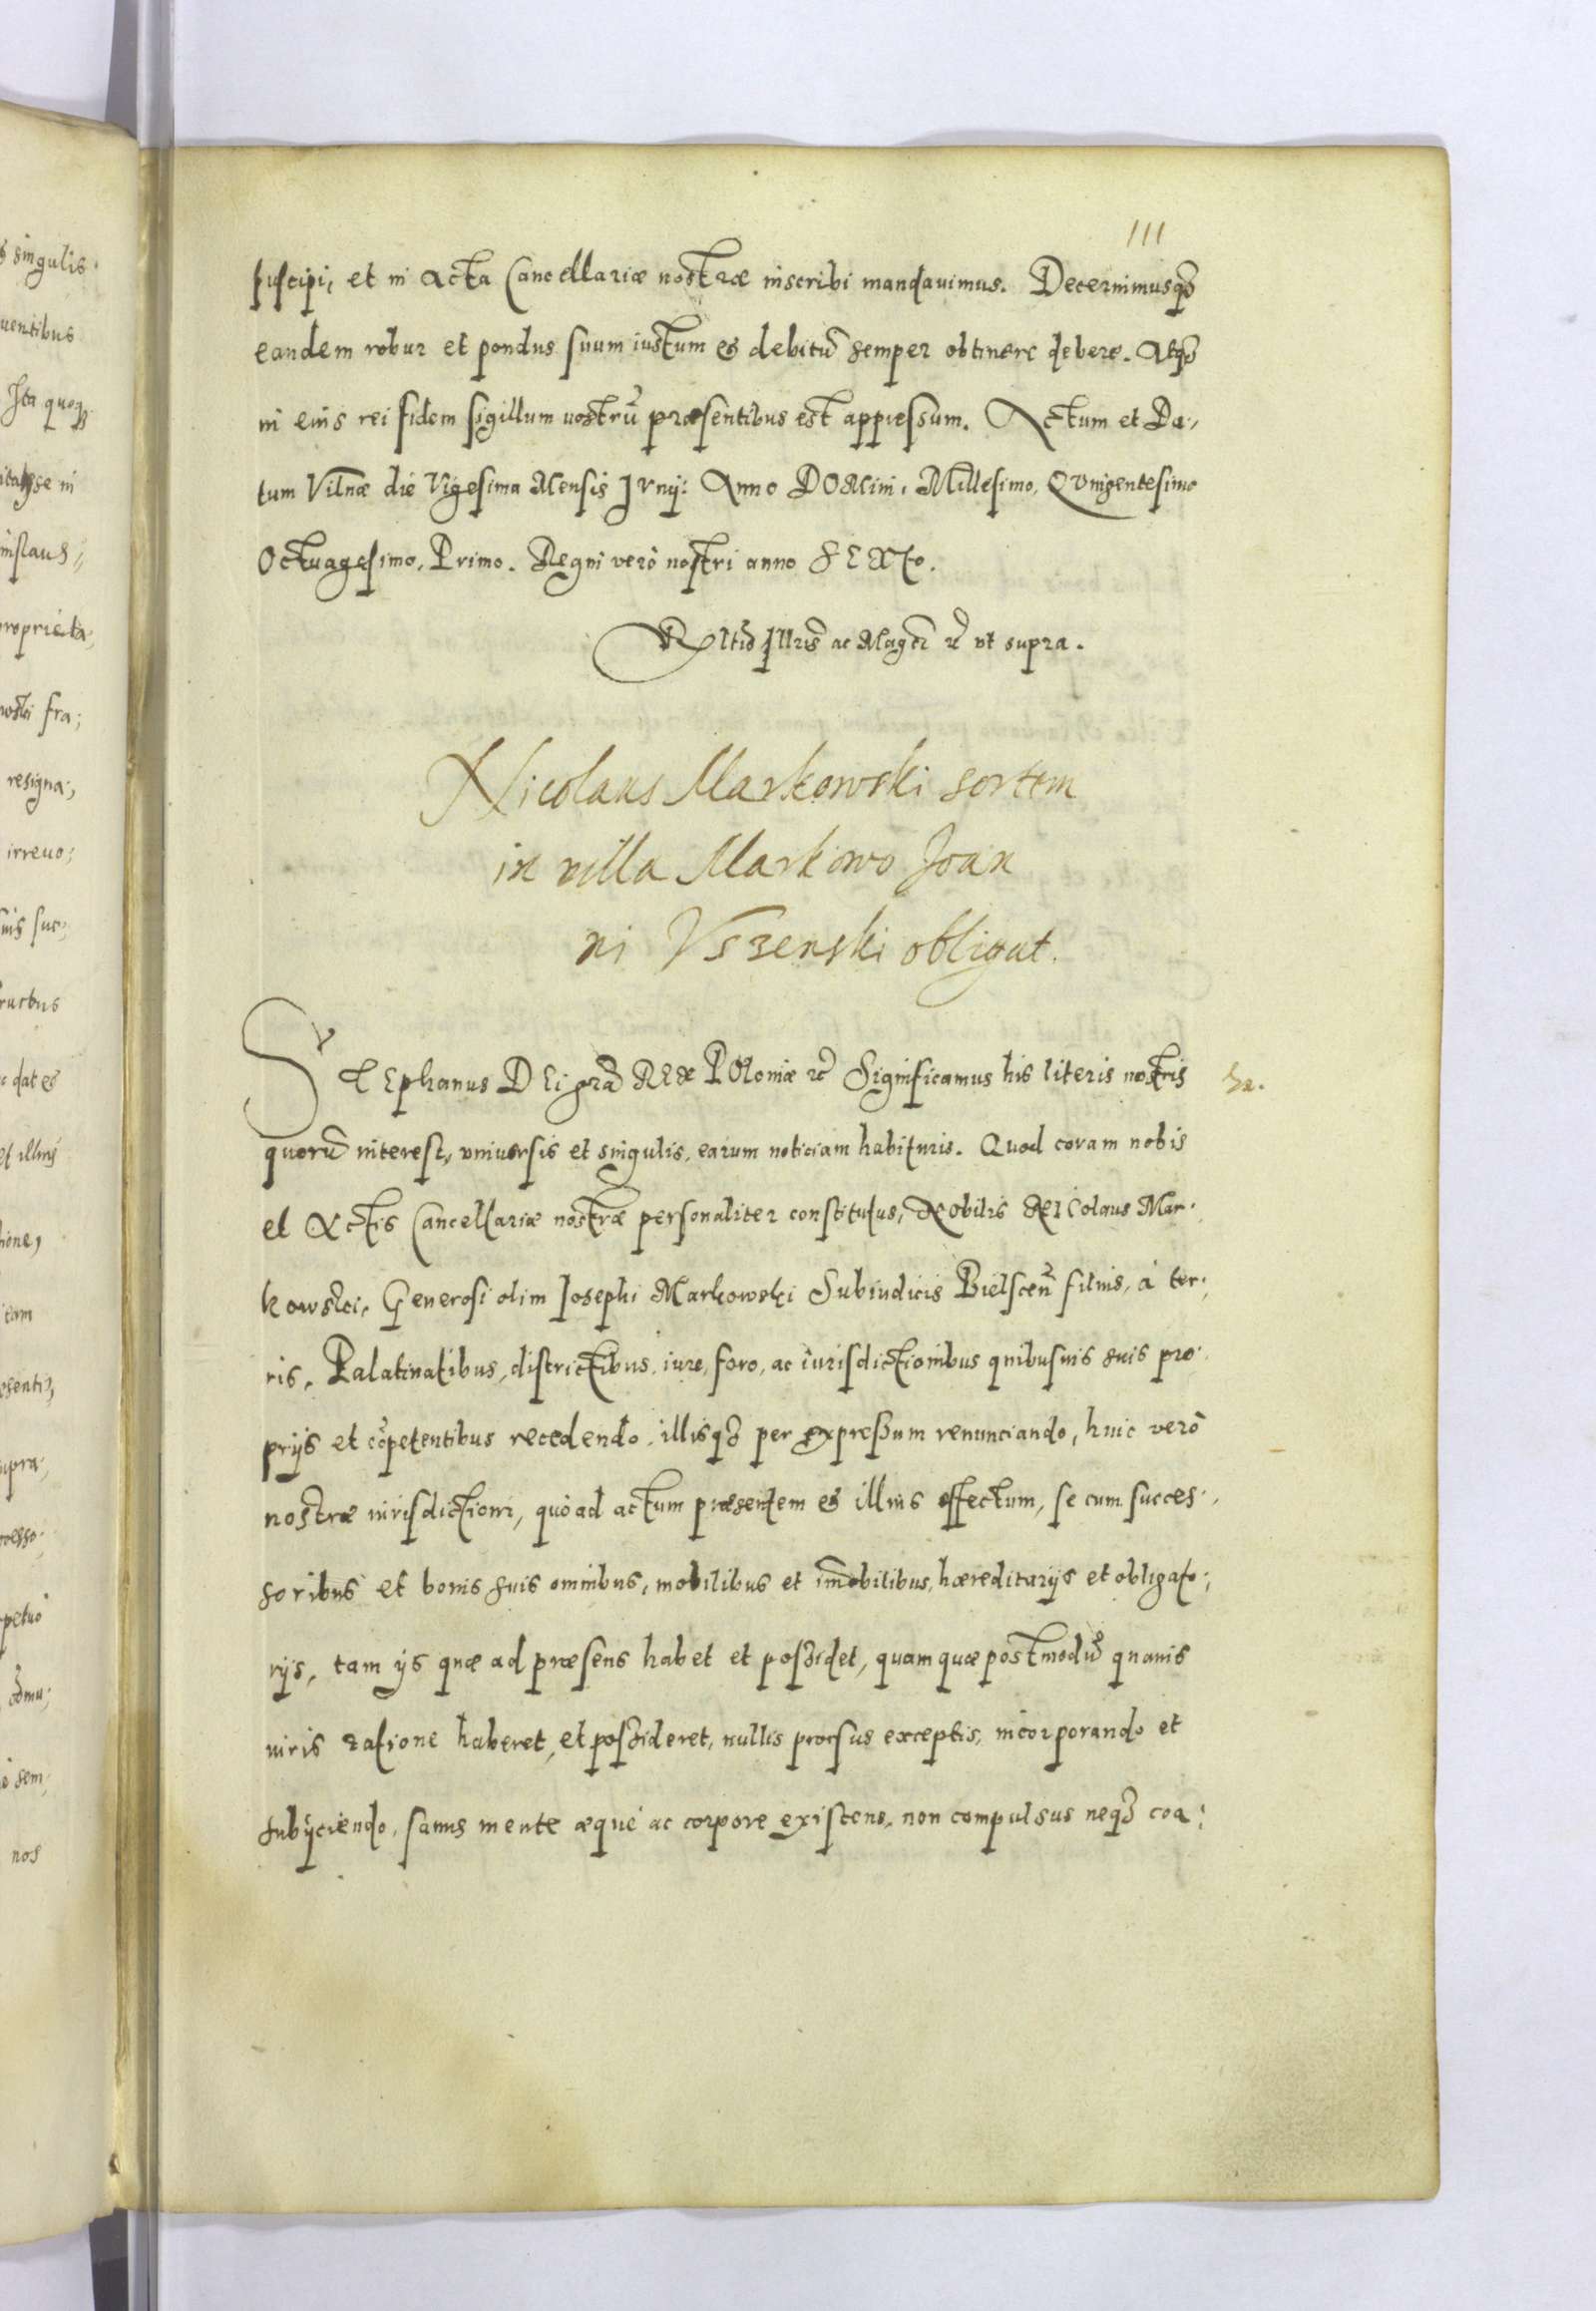 111
suscipi, et in Acta Cancellariæ nostræ inscribi mandauimus. Decernimusqʒ
eandem robur et pondus suum iustum et debitū semper obtinere debere. Atqʒ
in eius rei fidem sigillum nostrū præsentibus est appressum. Actum et Da-
tum Vilnæ die Vigesima Mensis Iunij: Anno DOMini, Millesimo, Quingentesimo
Octuagesimo, Primo. Regni verò nostri anno SEXto.
Rltio Illris ac Magci rc vt supra.
Nicolaus Markowski sortem
in villa Markowo Joan
ni Vszenski obligat.
STEphanus DEi gra REX POloniæ rc Significamus his literis nostris
quorū interest, vniuersis et singulis, earum noticiam habituris. Quod coram nobis
et Actis Cancellariæ nostræ personaliter constitutus, Nobilis NIColaus Mar-
kowski, Generosi olim Iosephi Markowski Subiudicis Bielscen̄ filius, à ter-
ris, Palatinatibus, districtibus, iure, foro, ac iurisdictionibus quibusuis suis pro-
prijs et cōpetentibus recedendo, illisqʒ per expressum renunciando, huic verò
nostræ iurisdictioni, quò ad actum præsentem et illius effectum, se cum succes-
soribus et bonis suis omnibus, mobilibus et im̄obilibus, hæreditarijs et obligato-
rijs, tam ijs quæ ad præsens habet et possidet, quam quæ postmodū quauis
iuris ratione haberet, et possideret, nullis prorsus exceptis, incorporando et
subijciendo, sanus mente æquè ac corpore existens, non compulsus neqʒ coa-
s singulis.
uentibus
Ita quoqʒ
inslaus
proprieta
wski fra;
resigna;
irreuo;
suis suc;
fructus
dat et
et illius
tione,
supra
petuò
sem
nos